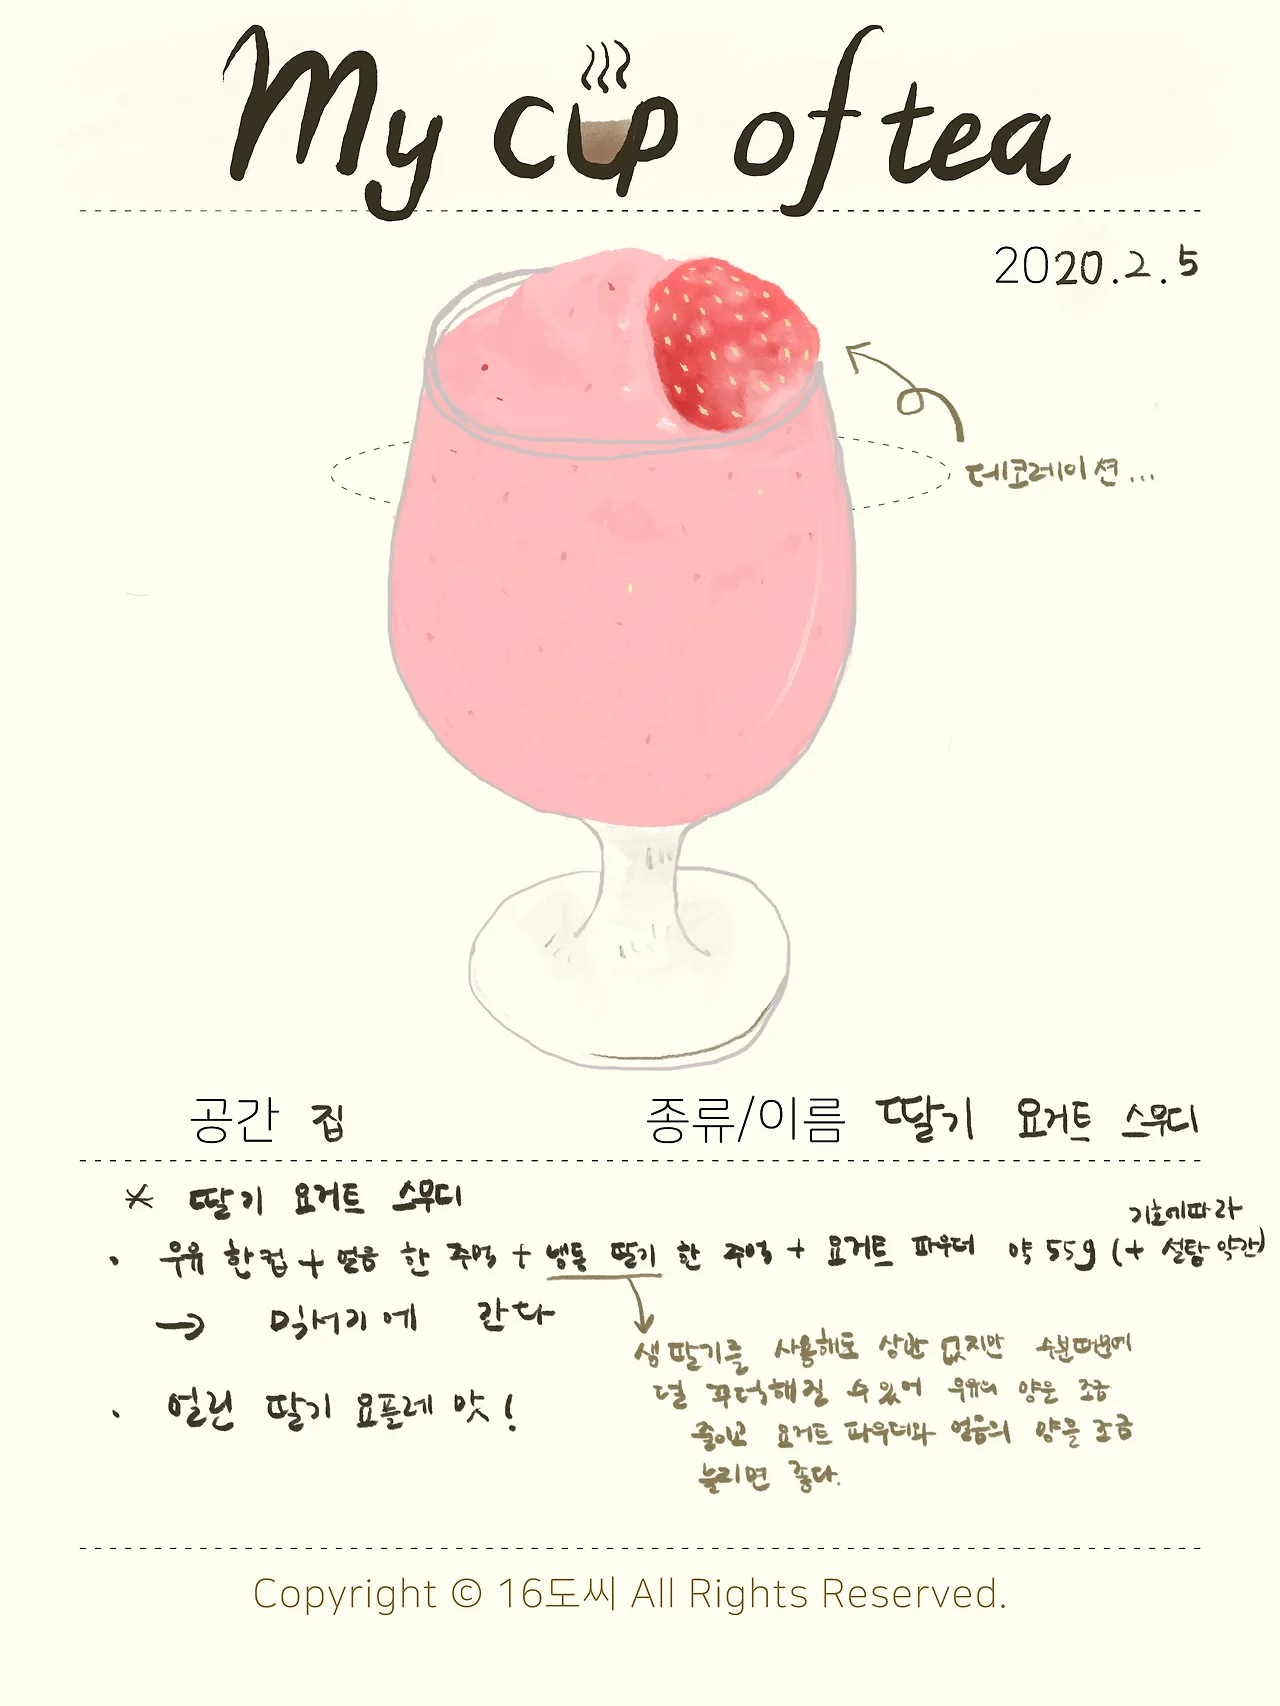 My cup of tea
2020.2.5
데코레이션...
공간 집
종류/이름 딸기 요거트 스무디
* 딸기 요거트 스무디
기호에따라
· 우유 한컵 + 얼음 한 주먹 + 냉동 딸기 한 주먹 + 요거트 파우더 약 55g (+ 설탕 약간)
→ 믹서기에 간다
생딸기를 사용해도 상관 없지만 수분때문에
덜 꾸덕해질 수 있어 우유의 양은 조금
줄이고 요거트 파우더와 얼음의 양을 조금
늘리면 좋다.
· 얼린 딸기 요플레 맛!
Copyright © 16도씨 All Rights Reserved.